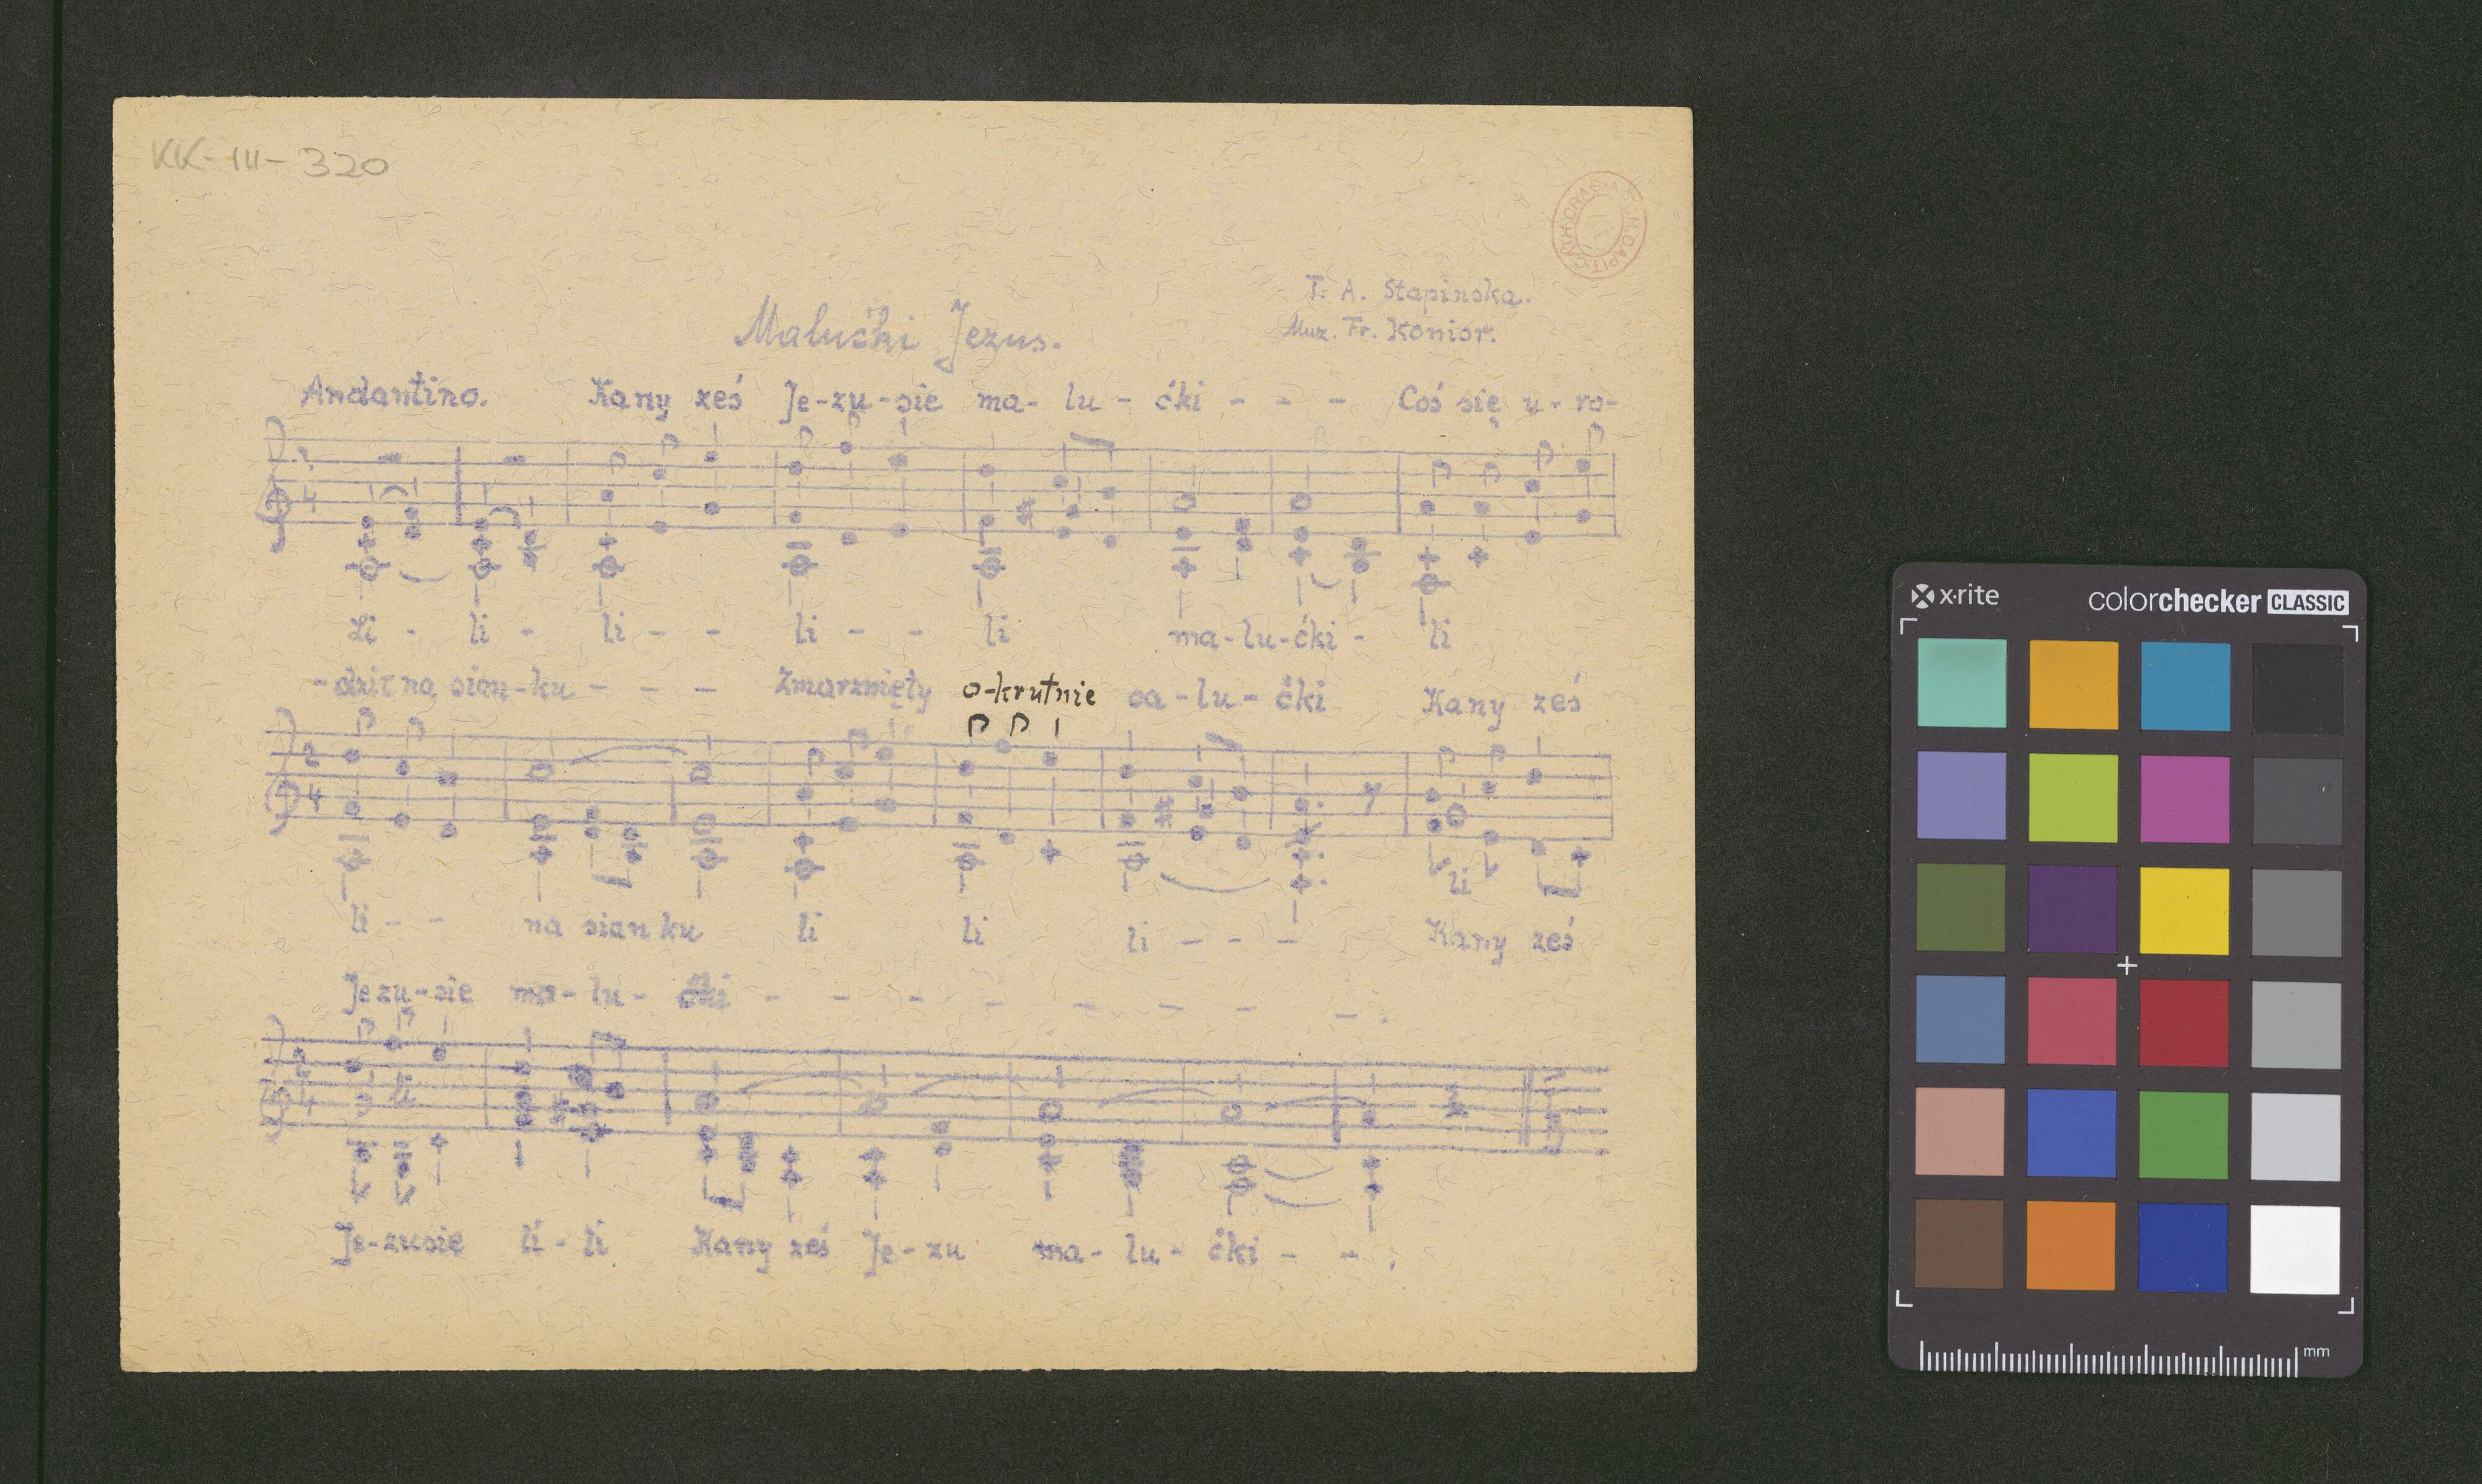 KK-III-320
T. A. Stapinska.
Muz. Fr. Konior.
Malućki Jezus.
Andantino. Kanyześ Je-zu-sie ma-lu-ćki - - - Coś się u-ro-
Li - li - li - - li - - li ma-lu-ćki - li
-dził na sian-ku - - - Zmarznięty o-krutnie ca-lu-ćki Kanyześ
li
li - - na sianku li li li - - - Kanyześ
Jezu-sie ma-lu-ćki - - - - - - - - .
li
Je-zusie li-li Kanyześ Je-zu ma-lu-ćki - - .
x·rite colorchecker CLASSIC
mm